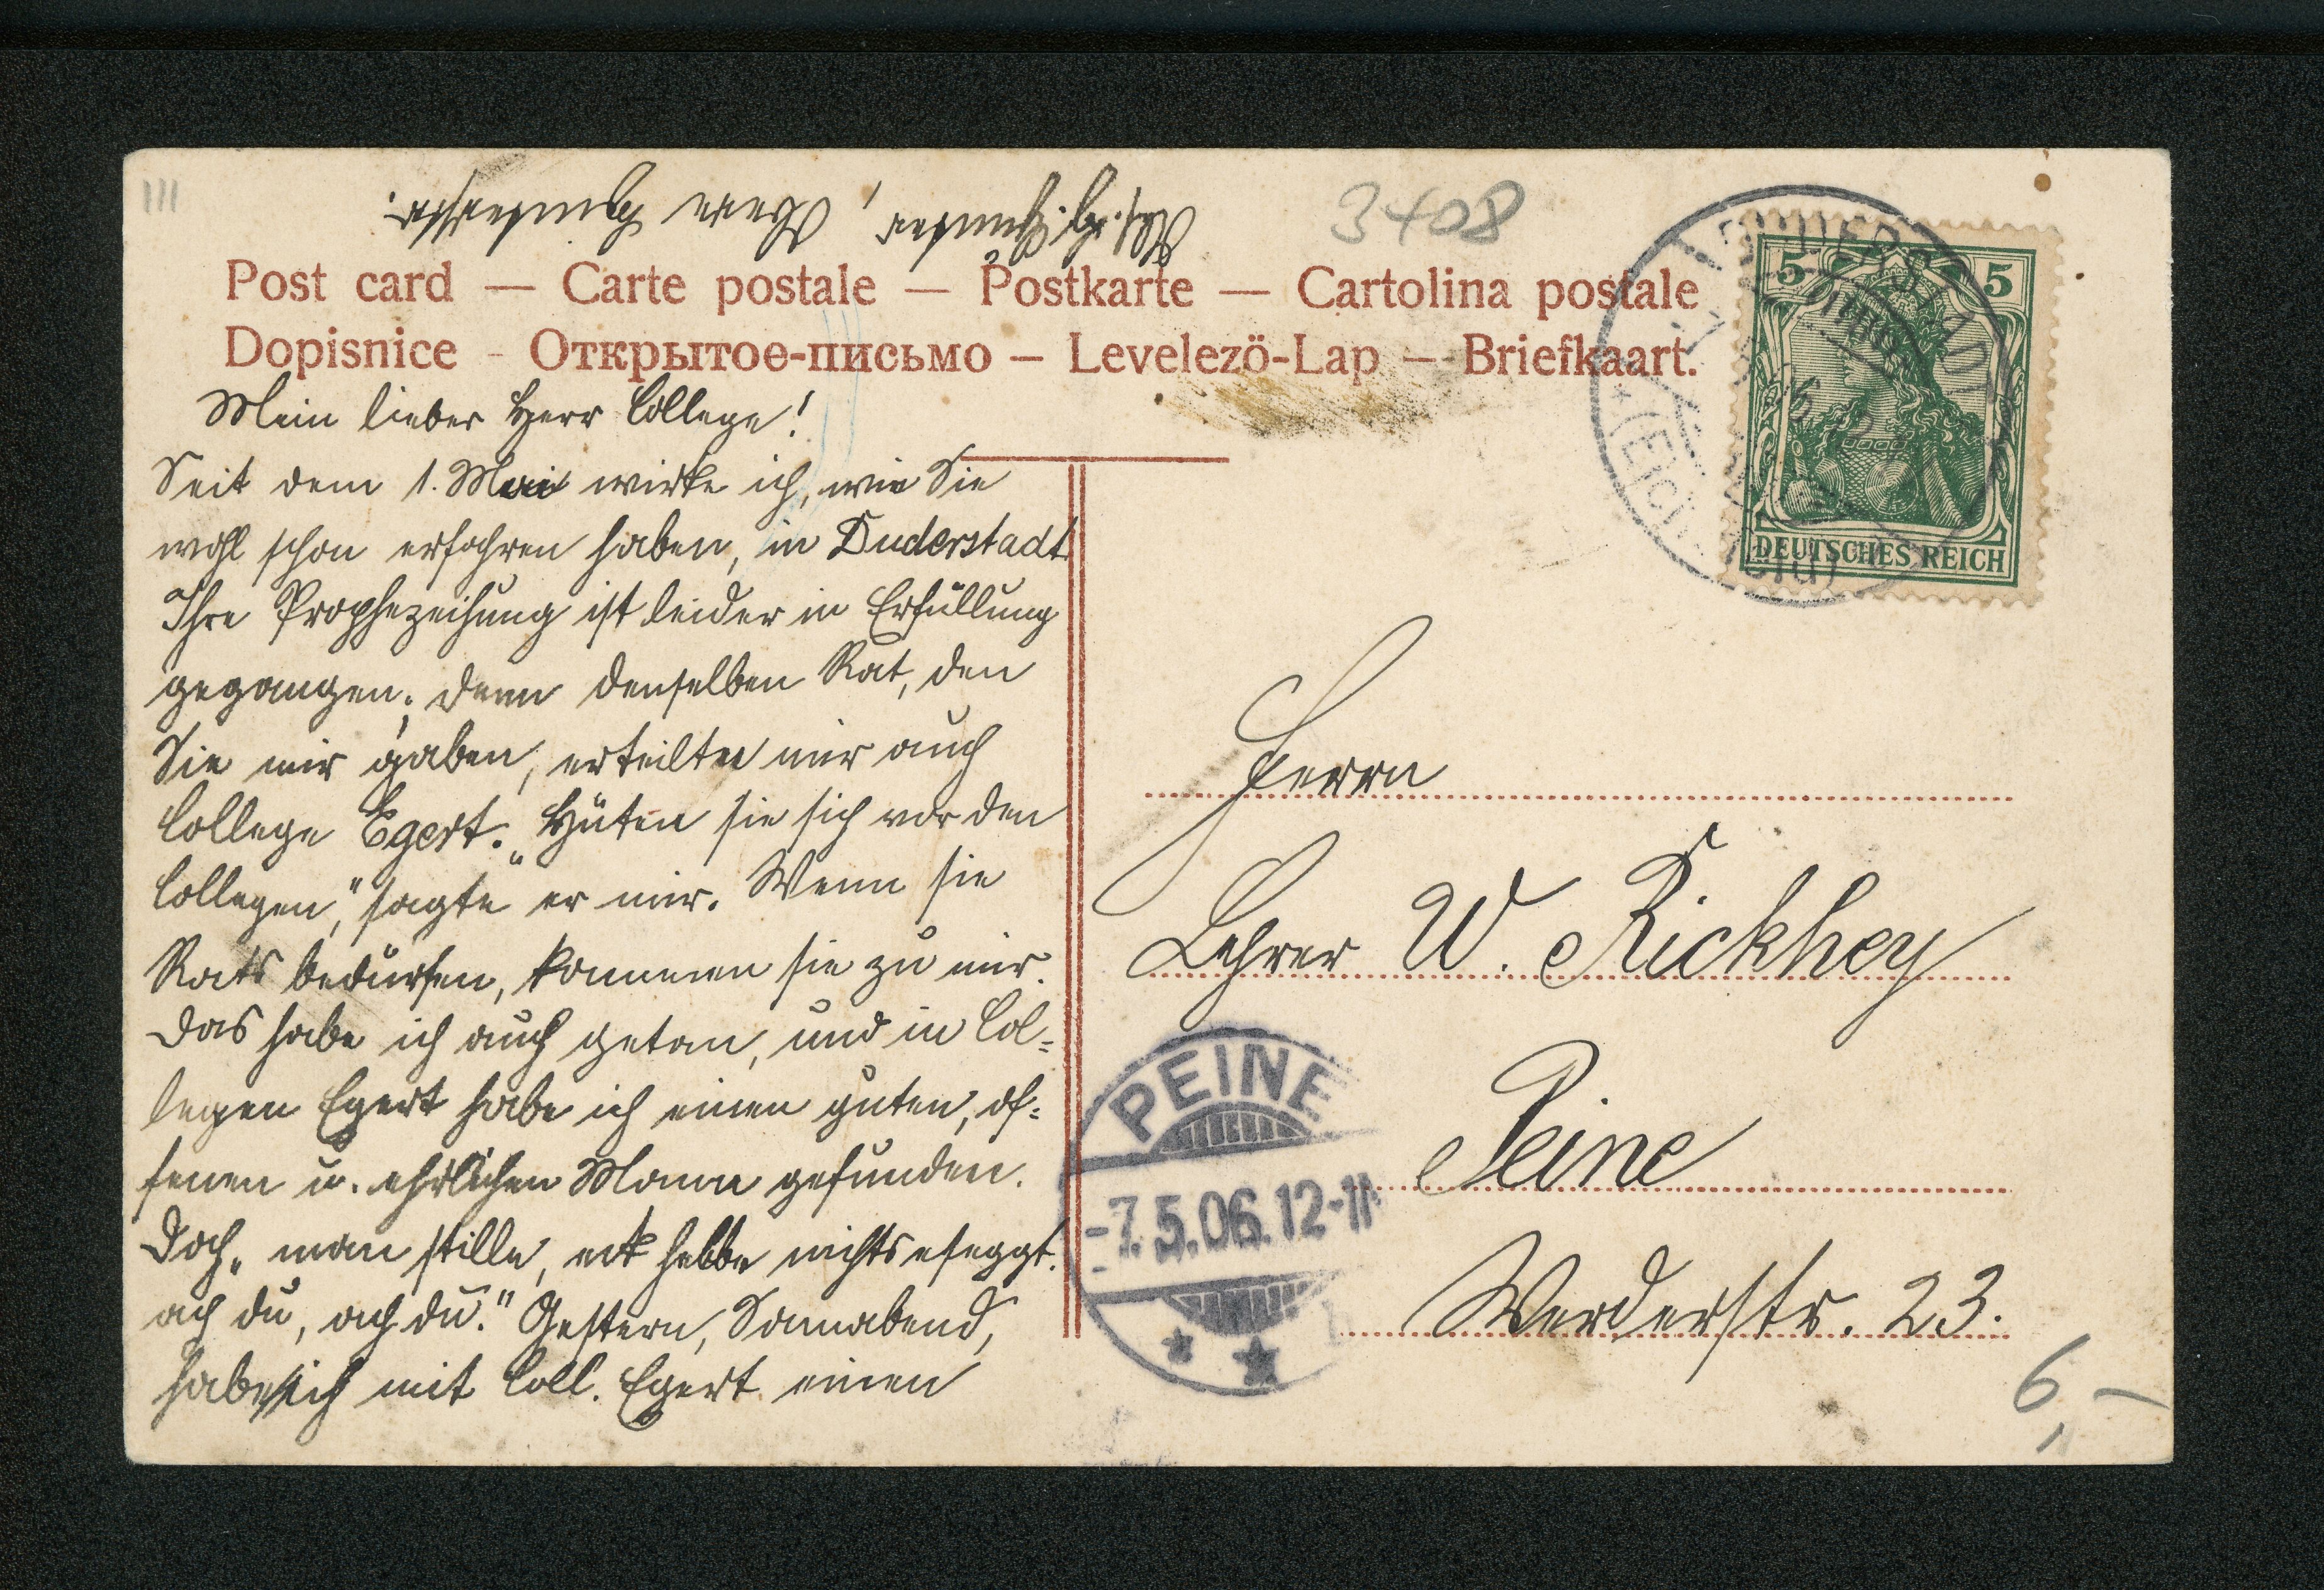 3408
Post card — Carte postale — Postkarte — Cartolina postale
Dopisnice - Открытое-письмо — Levelezö-Lap — Briefkaart.
Mein lieber Herr College!
Seit dem 1. Mai wirke ich, wie Sie
wohl schon erfahren haben, in Duderstadt
Ihre Prophezeihung ist leider in Erfüllung
gegangen; denn denselben Rat, den
Sie mir gaben, erteilte mir auch
College Egert. „Hüten sie sich vor den
Collegen," sagte er mir. Wenn sie
Rats bedürfen, kommen sie zu mir.
Das habe ich auch getan, und in Col=
legen Egert habe ich einen guten, of=
fenen u. ehrlichen Mann gefunden.
Doch „man stille, eck hebbe nichts eseggt.
ach du, ach du." Gestern, Sonnabend,
habe ich mit Coll. Egert einen
DEUTSCHES REICH
5 5
DUDERSTADT
(Eichsfeld)
Herrn
Lehrer W. Rickhey
Peine
Werderstr. 23.
PEINE
-7.5.06.12-1N
6,-